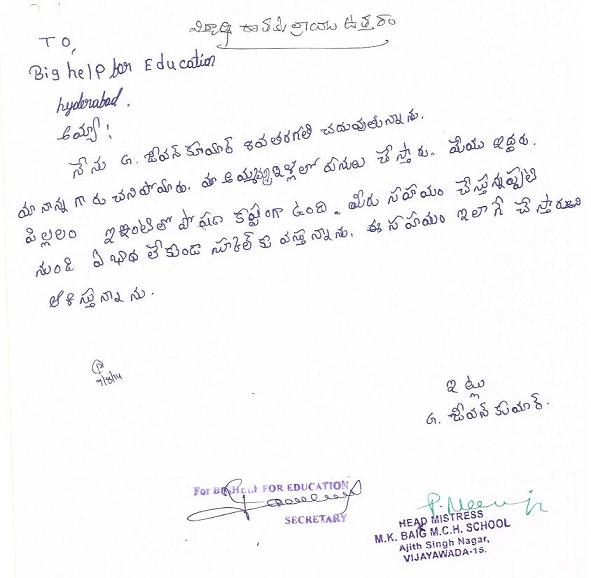 విద్యార్థి కనపరచు ఉత్తరం
TO,
Big help for Education
hyderabad.
అమ్మా!
నేను G. జీవన్ కుమార్ 8వతరగతి చదువుతున్నాను.
మా నాన్న గారు చనిపోయారు. మా అమ్మ ఇళ్లలో పనులు చేస్తారు. మేము ఇద్దరు
పిల్లలం ఇంటిలో పోషణ కష్టంగా ఉంది. మీరు సహాయం చేస్తున్నప్పటి
నుండి ఏ బాధ లేకుండా స్కూల్ కు వస్తున్నాను. ఈ సహాయం ఇలాగే చేస్తారని
ఆశిస్తున్నాను.
9/8/14
ఇట్లు
G. జీవన్ కుమార్.
For BIG HELP FOR EDUCATION
SECRETARY
HEAD MISTRESS
M.K. BAIG M.C.H. SCHOOL
Ajith Singh Nagar,
VIJAYAWADA-15.